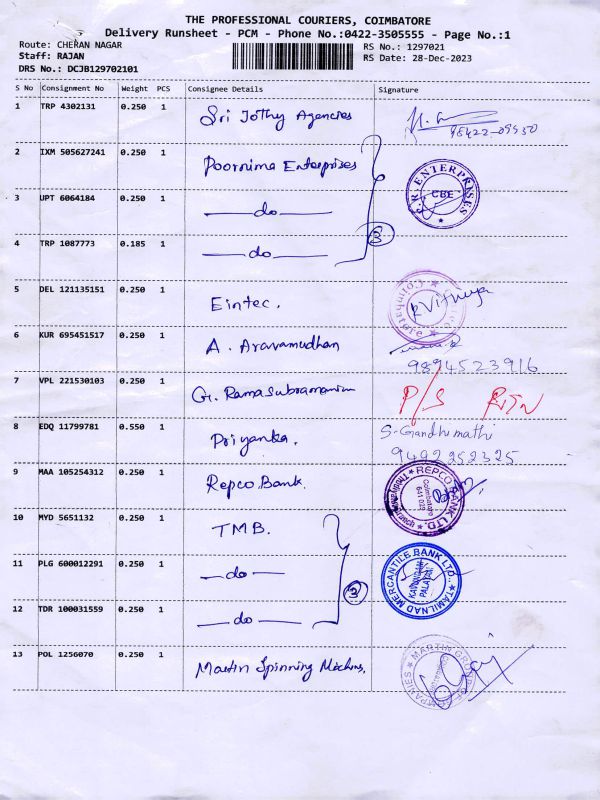 THE PROFESSIONAL COURIERS, COIMBATORE
Delivery Runsheet - PCM - Phone No.:0422-3505555 - Page No.:1
Route: CHERAN NAGAR
RS No.: 1297021
Staff: RAJAN
RS Date: 28-Dec-2023
DRS No.: DCJB129702101
S No Consignment No Weight PCS Consignee Details Signature
1 TRP 4302131 0.250 1 Sri Jothy Agencies
98422-09950
2 IXM 505627241 0.250 1 Poornima Enterprises
ENTERPRISES
CBE
3 UPT 6064184 0.250 1 —do—
3
4 TRP 1087773 0.185 1 —do—
5 DEL 121135151 0.250 1 Eintec. R Vithiya
Coimbatore
6 KUR 695451517 0.250 1 A. Aravamudhan
9894523916
7 VPL 221530103 0.250 1 G. Ramasubramanian P/S RTN
8 EDQ 11799781 0.550 1 Priyanka. S. Gandhimathi
9492252325
9 MAA 105254312 0.250 1 Repco Bank.
REPCO BANK LTD.
Coimbatore
10 MYD 5651132 0.250 1 TMB.
11 PLG 600012291 0.250 1 —do—
TAMILNAD MERCANTILE BANK LTD.,
KAVUNDAM
PALAYAM
3
12 TDR 100031559 0.250 1 —do—
13 POL 1256070 0.250 1 Martin Spinning Machins.
MARTIN GROUP OF COMPANIES